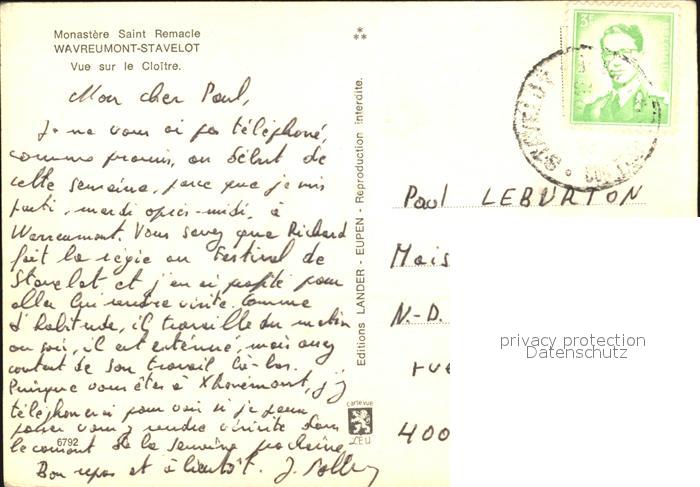 Monastère Saint Remacle
WAVREUMONT-STAVELOT
Vue sur le Cloître.
Mon cher Paul,
Je ne vous ai pas téléphoné,
comme promis, au début de
cette semaine, parce que je suis
parti, mardi après-midi, à
Wavreumont. Vous savez que Richard
fait la régie au Festival de
Stavelot et j'en ai profité pour
aller lui rendre visite. Comme
d'habitude, il travaille du matin
au soir, il est exténué, mais assez
content de son travail là-bas.
Puisque vous êtes à Xhovémont, j'y
téléphonerai pour voir si je peux
passer vous y rendre visite dans
le courant de la semaine prochaine.
Bon repos et à bientôt. J.
6792
Editions LANDER - EUPEN - Reproduction interdite.
cartevue
LEU
3F
STAVELOT
Paul LEBURTON
Mais
N.-D.
rue
400
privacy protection
Datenschutz